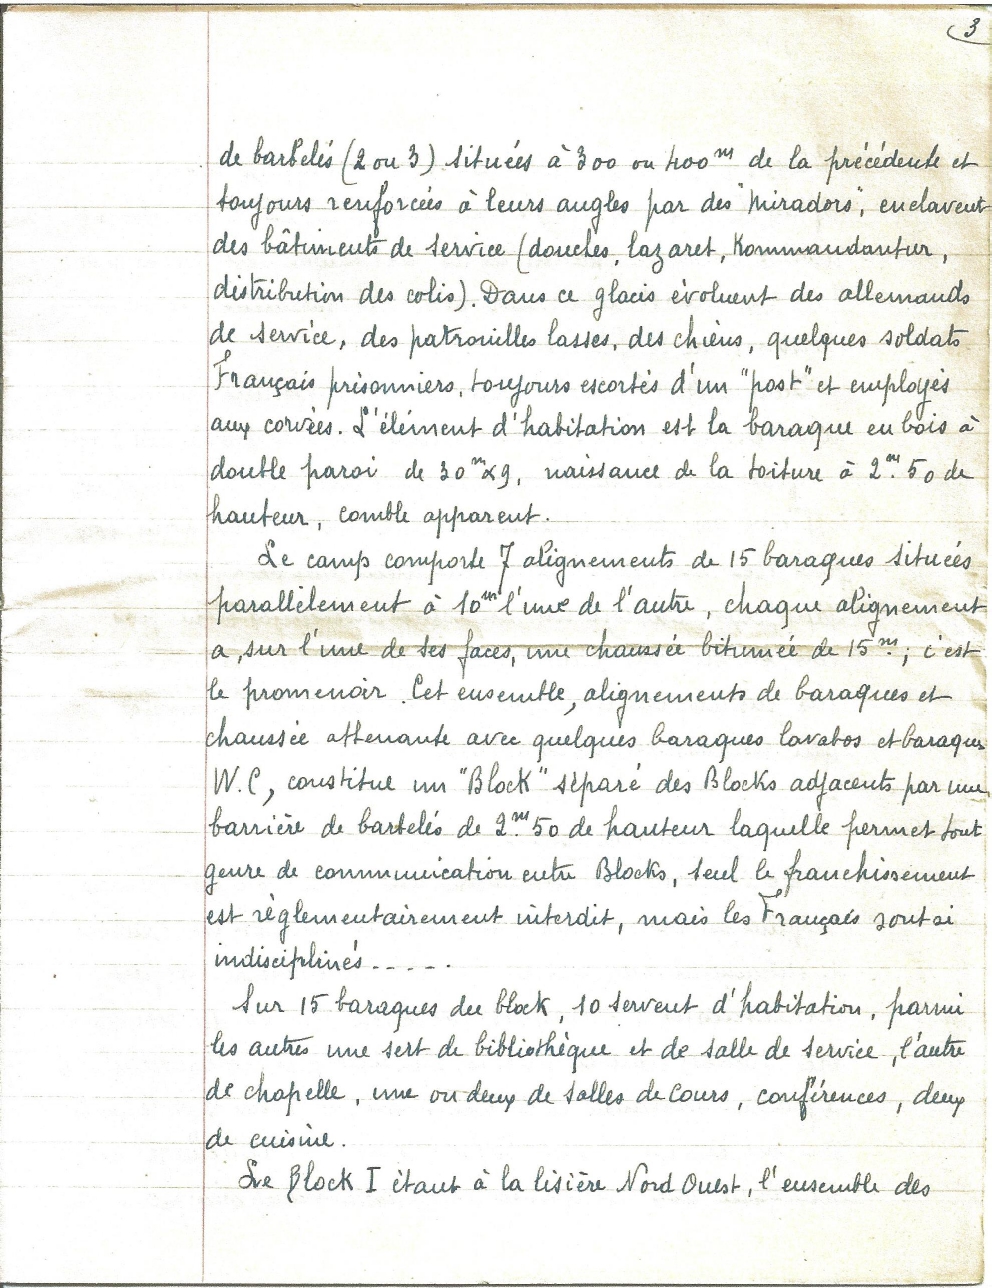 3
de barbelés (2 ou 3) situées à 300 ou 400m de la précédente et
toujours renforcées à leurs angles par des "Miradors", enclavent
des bâtiments de service (douches, lazaret, Kommandantur,
distribution des colis). Dans ce glacis évoluent des allemands
de service, des patrouilles lasses, des chiens, quelques soldats
Français prisonniers, toujours escortés d'un "post" et employés
aux corvées. L'élément d'habitation est la baraque en bois à
double paroi de 30m x 9, naissance de la toiture à 2m.50 de
hauteur, comble apparent.
Le camp comporte 7 alignements de 15 baraques situées
parallèlement à 10m l'une de l'autre, chaque alignement
a, sur l'une de ses faces, une chaussée bitumée de 15m.; c'est
le promenoir. Cet ensemble, alignements de baraques et
chaussée attenante avec quelques baraques lavabos et baraques
W.C, constitue un "Block" séparé des Blocks adjacents par une
barrière de barbelés de 2m.50 de hauteur laquelle permet tout
genre de communication entre Blocks, seul le franchissement
est règlementairement interdit, mais les Français sont si
indisciplinés -----.
Sur 15 baraques du block, 10 servent d'habitation, parmi
les autres une sert de bibliothèque et de salle de service, l'autre
de chapelle, une ou deux de salles de Cours, conférences, deux
de cuisine.
Le Block I étant à la lisière Nord Ouest, l'ensemble des